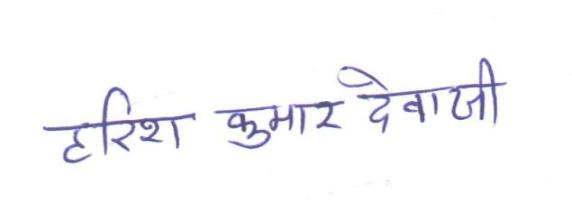 हरिश कुमार देवासी